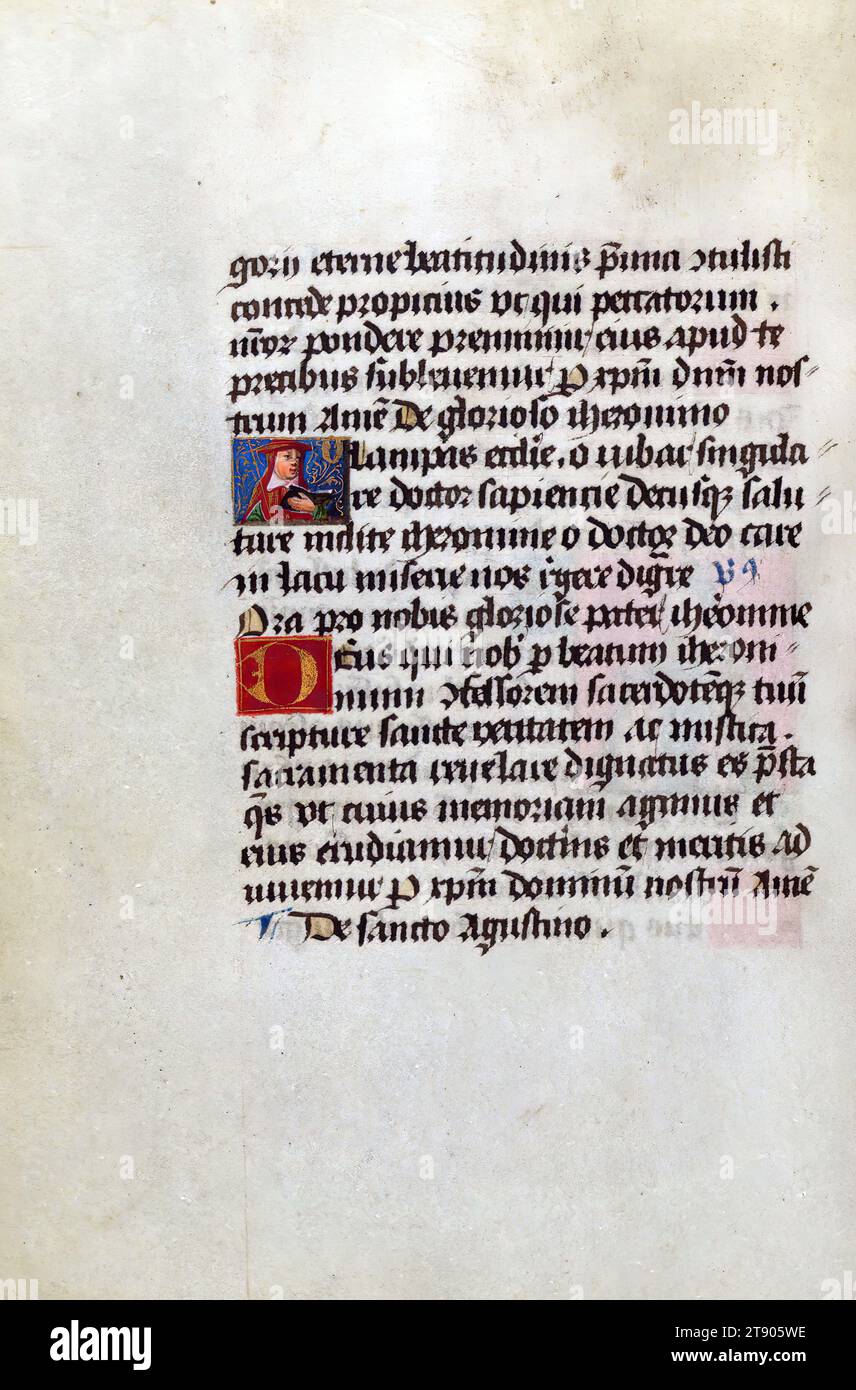 gorii eterne beatitudinis p̄mia ↄtulisti
concede propicius vt qui peccatorum .
nr̄or pondere premimur eius apud te
precibus subleuemur P xp̄m dn̄m nos⸗
trum Amē De glorioso iheronimo
lampas ecclie. o iubar singula⸗
re doctor sapiencie decusqꝫ salu⸗
ture inclite iheronime o doctor deo care
in lacu miserie nos
Ora pro nobis gloriose pater iheōnime
Deus qui nob p beatum iheroni⸗
mum ↄfessorem sacerdotēqꝫ tuū
scripture sancte veritatem ac mistica .
sacramenta reuelare dignatus es p̄sta
q̄s vt cuius memoriam agimus et
eius erudiamur doctīnis et meritis ad
iuuemur P xp̄m dominū nostrū Amē
De sancto Agustino .
alamy
Image ID: 2T905WE
www.alamy.com